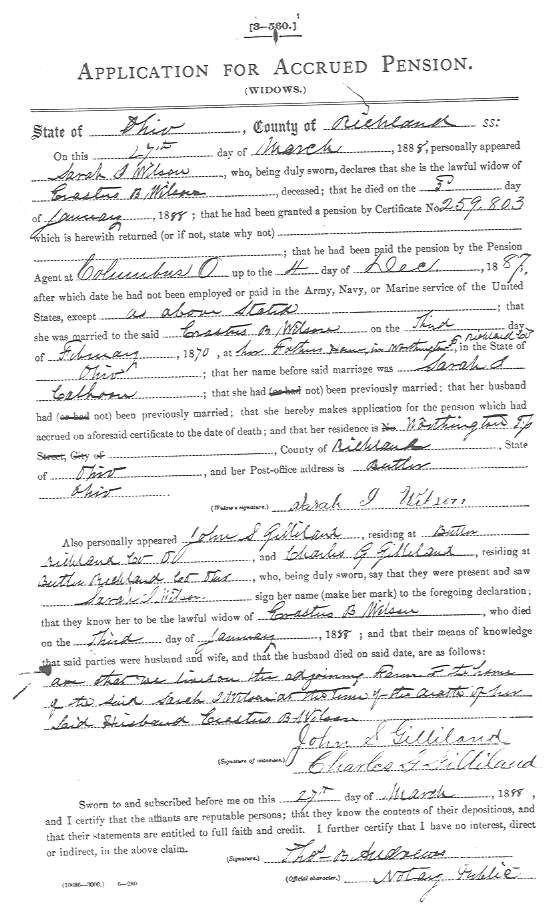 [3-560.]
APPLICATION FOR ACCRUED PENSION.
(WIDOWS.)
State of Ohio, County of Richland ss:
On this 27th day of March, 1888, personally appeared
Sarah I Wilson, who, being duly sworn, declares that she is the lawful widow of
Erastus B. Wilson deceased; that he died on the 3d day
of January, 1888; that he had been granted a pension by Certificate No. 259.803
which is herewith returned (or if not, state why not)
; that he had been paid the pension by the Pension
Agent at Columbus O up to the 4 day of Dec., 1887,
after which date he had not been employed or paid in the Army, Navy, or Marine service of the United
States, except as above Stated; that
she was married to the said Erastus B. Wilson on the Third day
of February, 1870, at her Fathers House in Worthington Tp Richland Co, in the State of
Ohio; that her name before said marriage was Sarah I
Calhoon; that she had (or had not) been previously married; that her husband
had (or had not) been previously married; that she hereby makes application for the pension which had
accrued on aforesaid certificate to the date of death; and that her residence is No. Worthington Tp
Street, City of, County of Richland, State
of Ohio, and her Post-office address is Butler
Ohio
(Widow's signature.) Sarah I Wilson
Also personally appeared John S Gilliland, residing at Butler
Richland Co O, and Charles G Gilliland, residing at
Butler Richland Co Ohio, who, being duly sworn, say that they were present and saw
Sarah I Wilson sign her name (make her mark) to the foregoing declaration;
that they know her to be the lawful widow of Erastus B Wilson, who died
on the Third day of January, 1888; and that their means of knowledge
that said parties were husband and wife, and that the husband died on said date, are as follows:
are that we lived on the adjoining Farm To the home
of the said Sarah I Wilson at the time of the death of her
Said Husband Erastus B. Wilson
John S Gilliland
(Signature of witnesses.) Charles G Gilliland
Sworn to and subscribed before me on this 27th day of March, 1888,
and I certify that the affiants are reputable persons; that they know the contents of their depositions, and
that their statements are entitled to full faith and credit. I further certify that I have no interest, direct
or indirect, in the above claim.
(Signature.) Thos B Andrews
(Official character.) Notary Public